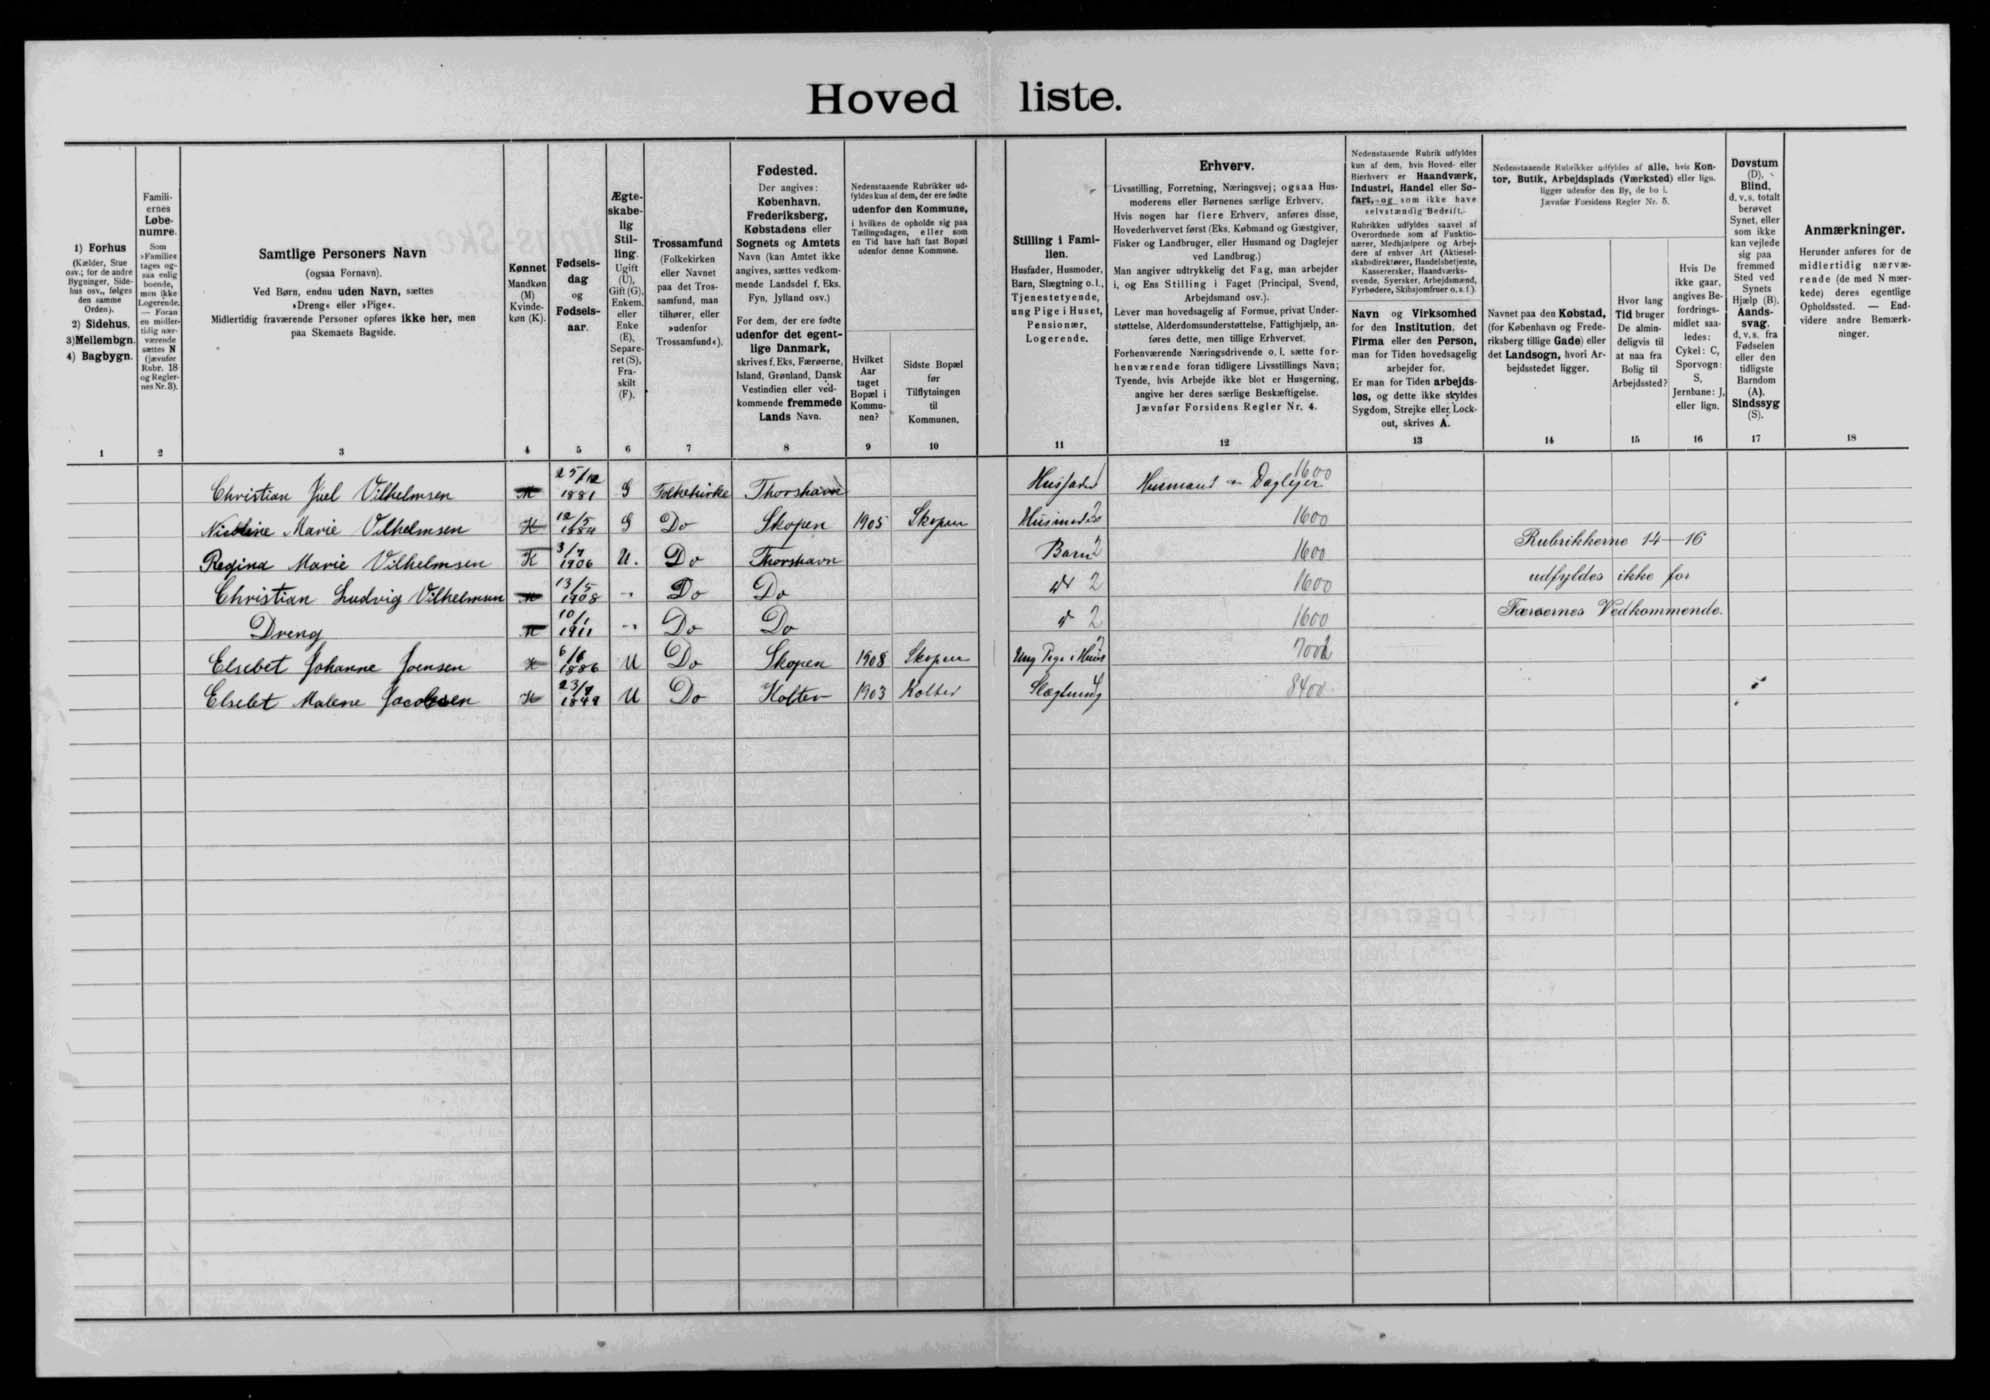 Hoved liste.
1) Forhus
(Kælder, Stue
osv.; for de andre
Bygninger, Side-
hus osv., følges
den samme
Orden).
2) Sidehus.
3) Mellembgn.
4) Bagbygn.
1
Famili-
ernes
Løbe-
numre.
Som
»Familie«
tages og-
saa enlig
boende,
men ikke
Logerende.
— Foran
en midler-
tidig nær-
værende
sættes N
(jævnfør
Rubr. 18
og Regler-
nes Nr. 3).
2
Samtlige Personers Navn
(ogsaa Fornavn).
Ved Børn, endnu uden Navn, sættes
»Dreng« eller »Pige«.
Midlertidig fraværende Personer opføres ikke her, men
paa Skemaets Bagside.
3
Kønnet
Mandkøn
(M)
Kvinde-
køn (K).
4
Fødsels-
dag
og
Fødsels-
aar.
5
Ægte-
skabe-
lig
Stil-
ling.
Ugift
(U),
Gift (G),
Enkem.
eller
Enke
(E),
Separe-
ret (S),
Fra-
skilt
(F).
6
Trossamfund
(Folkekirken
eller Navnet
paa det Tros-
samfund, man
tilhører, eller
»udenfor
Trossamfund«).
7
Fødested.
Der angives:
København,
Frederiksberg,
Købstadens eller
Sognets og Amtets
Navn (kan Amtet ikke
angives, sættes vedkom-
mende Landsdel f. Eks.
Fyn, Jylland osv.)
For dem, der ere fødte
udenfor det egent-
lige Danmark,
skrives f. Eks. Færøerne,
Island, Grønland, Dansk
Vestindien eller ved-
kommende fremmede
Lands Navn.
8
Nedenstaaende Rubrikker ud-
fyldes kun af dem, der ere fødte
udenfor den Kommune,
i hvilken de opholde sig paa
Tællingsdagen, eller som
en Tid have haft fast Bopæl
udenfor denne Kommune.
Hvilket
Aar
taget
Bopæl i
Kommu-
nen?
9
Sidste Bopæl
før
Tilflytningen
til
Kommunen.
10
Stilling i Fami-
lien.
Husfader, Husmoder,
Barn, Slægtning o. l.,
Tjenestetyende,
ung Pige i Huset,
Pensionær,
Logerende.
11
Erhverv.
Livsstilling, Forretning, Næringsvej; ogsaa Hus-
moderens eller Børnenes særlige Erhverv.
Hvis nogen har flere Erhverv, anføres disse,
Hovederhvervet først (Eks. Købmand og Gæstgiver,
Fisker og Landbruger, eller Husmand og Daglejer
ved Landbrug.)
Man angiver udtrykkelig det Fag, man arbejder
i, og Ens Stilling i Faget (Principal, Svend,
Arbejdsmand osv.).
Lever man hovedsagelig af Formue, privat Under-
støttelse, Alderdomsunderstøttelse, Fattighjælp, an-
føres dette, men tillige Erhvervet.
Forhenværende Næringsdrivende o. l. sætte for-
henværende foran tidligere Livsstillings Navn;
Tyende, hvis Arbejde ikke blot er Husgerning,
angive her deres særlige Beskæftigelse.
Jævnfør Forsidens Regler Nr. 4.
12
Nedenstaaende Rubrik udfyldes
kun af dem, hvis Hoved- eller
Bierhverv er Haandværk,
Industri, Handel eller Sø-
fart, og som ikke have
selvstændig Bedrift.
Rubrikken udfyldes saavel af
Overordnede som af Funktio-
nærer, Medhjælpere og Arbej-
dere af enhver Art (Aktiesel-
skabsdirektører, Handelsbetjente,
Kassererskær, Haandværks-
svende, Syersker, Arbejdsmænd,
Fyrbødere, Skibsjomfruer o. s. f.)
Navn og Virksomhed
for den Institution, det
Firma eller den Person,
man for Tiden hovedsagelig
arbejder for.
Er man for Tiden arbejds-
løs, og dette ikke skyldes
Sygdom, Strejke eller Lock-
out, skrives A.
13
Nedenstaaende Rubrikker udfyldes af alle, hvis Kon-
tor, Butik, Arbejdsplads (Værksted) eller lign.
ligger udenfor den By, de bo i.
Jævnfør Forsidens Regler Nr. 5.
Navnet paa den Købstad,
(for København og Frede-
riksberg tillige Gade) eller
det Landsogn, hvori Ar-
bejdsstedet ligger.
14
Hvor lang
Tid bruger
De almin-
deligvis til
at naa fra
Bolig til
Arbejdssted?
15
Hvis De
ikke gaar,
angives Be-
fordrings-
midlet saa-
ledes:
Cykel: C,
Sporvogn:
S,
Jernbane: J,
eller lign.
16
Døvstum
(D).
Blind,
d. v. s. totalt
berøvet
Synet, eller
som ikke
kan vejlede
sig paa
fremmed
Sted ved
Synets
Hjælp (B).
Aands-
svag,
d. v. s. fra
Fødselen
eller den
tidligste
Barndom
(A).
Sindssyg
(S).
17
Anmærkninger.
Herunder anføres for de
midlertidig nærvæ-
rende (de med N mær-
kede) deres egentlige
Opholdssted. — End-
videre andre Bemærk-
ninger.
18
Christian Juel Vilhelmsen M 25/12 1881 G Folkekirke Thorshavn Husfader Husmand Daglejer 1600
Nicoline Marie Vilhelmsen K 12/5 1884 G Do Skopen 1905 Skopen Husmoder 1600
Regina Marie Vilhelmsen K 3/7 1906 U. Do Thorshavn Barn 2 1600
Christian Ludvig Vilhelmsen M 13/5 1908 Do Do 2 1600
Dreng M 10/1 1911 Do Do 2 1600
Elsebet Johanne Joensen K 1886 U Do Skopen 1908 Skopen Ung Pige i Huset
Elsebet Malene Jacobsen K U Do Kolter 1903 Kolter Slægtning 8400
Rubrikkerne 14-16
udfyldes ikke for
Færøernes Vedkommende.